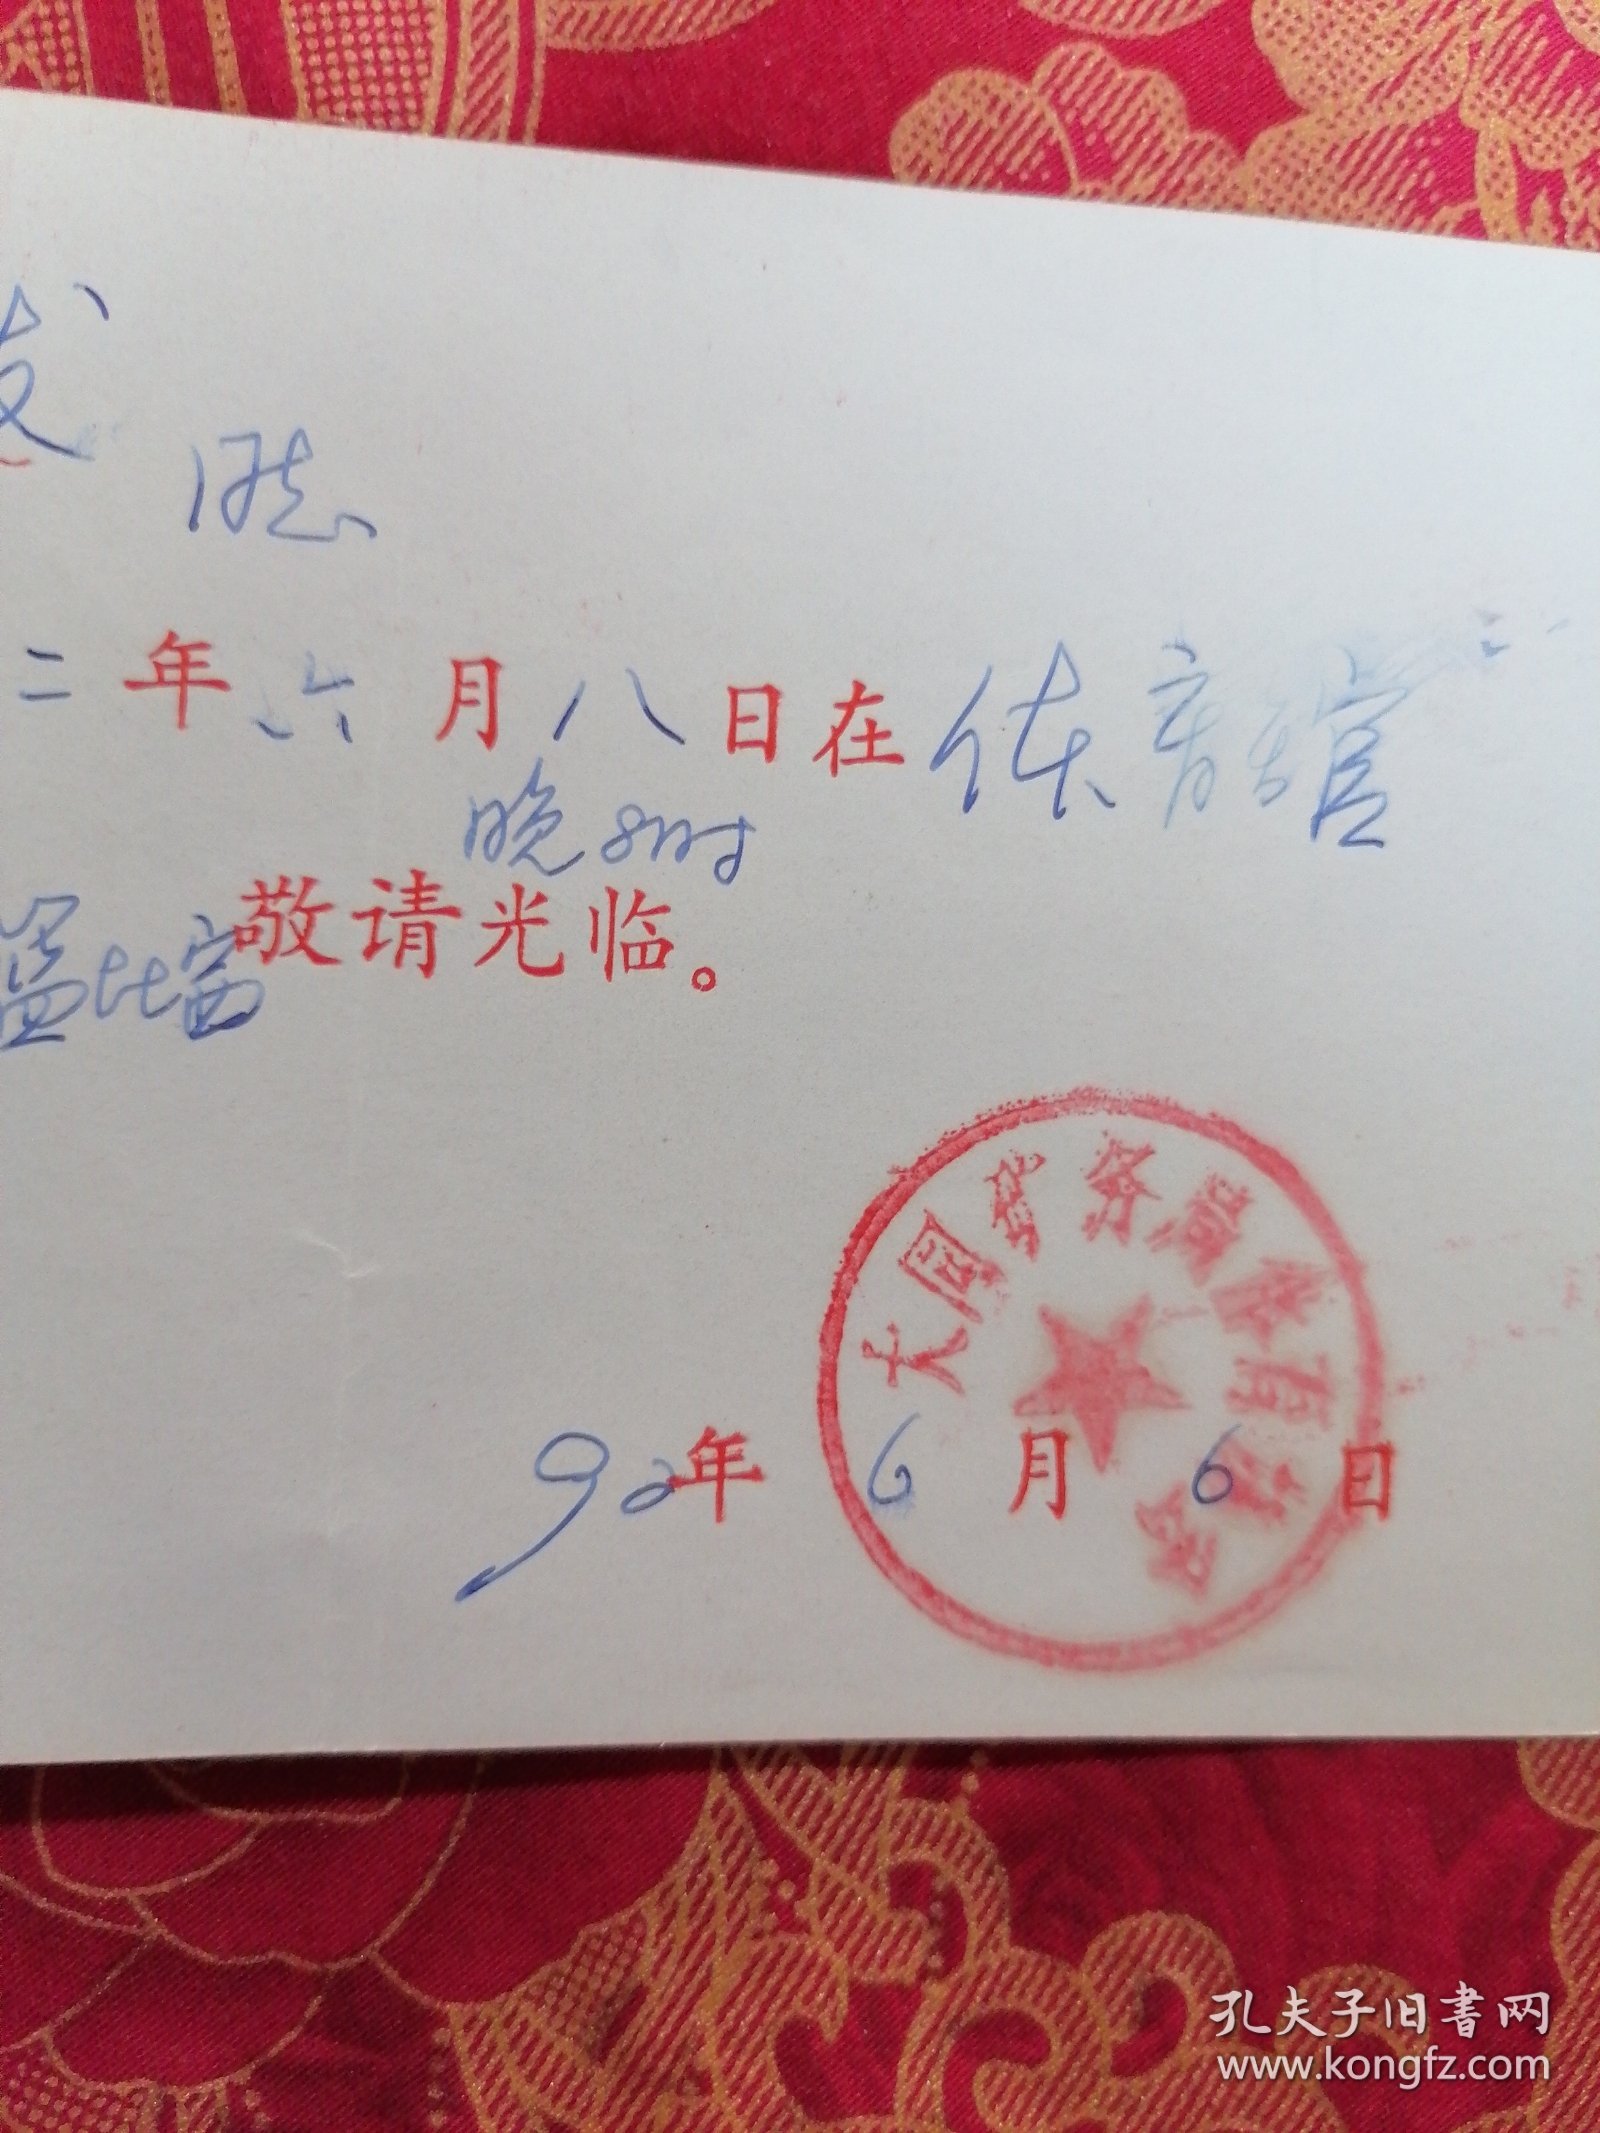 发
同志
二年六月八日在体育馆
晚8时
敬请光临。
大同矿务局体育
92年6月6日
孔夫子旧书网
www.kongfz.com